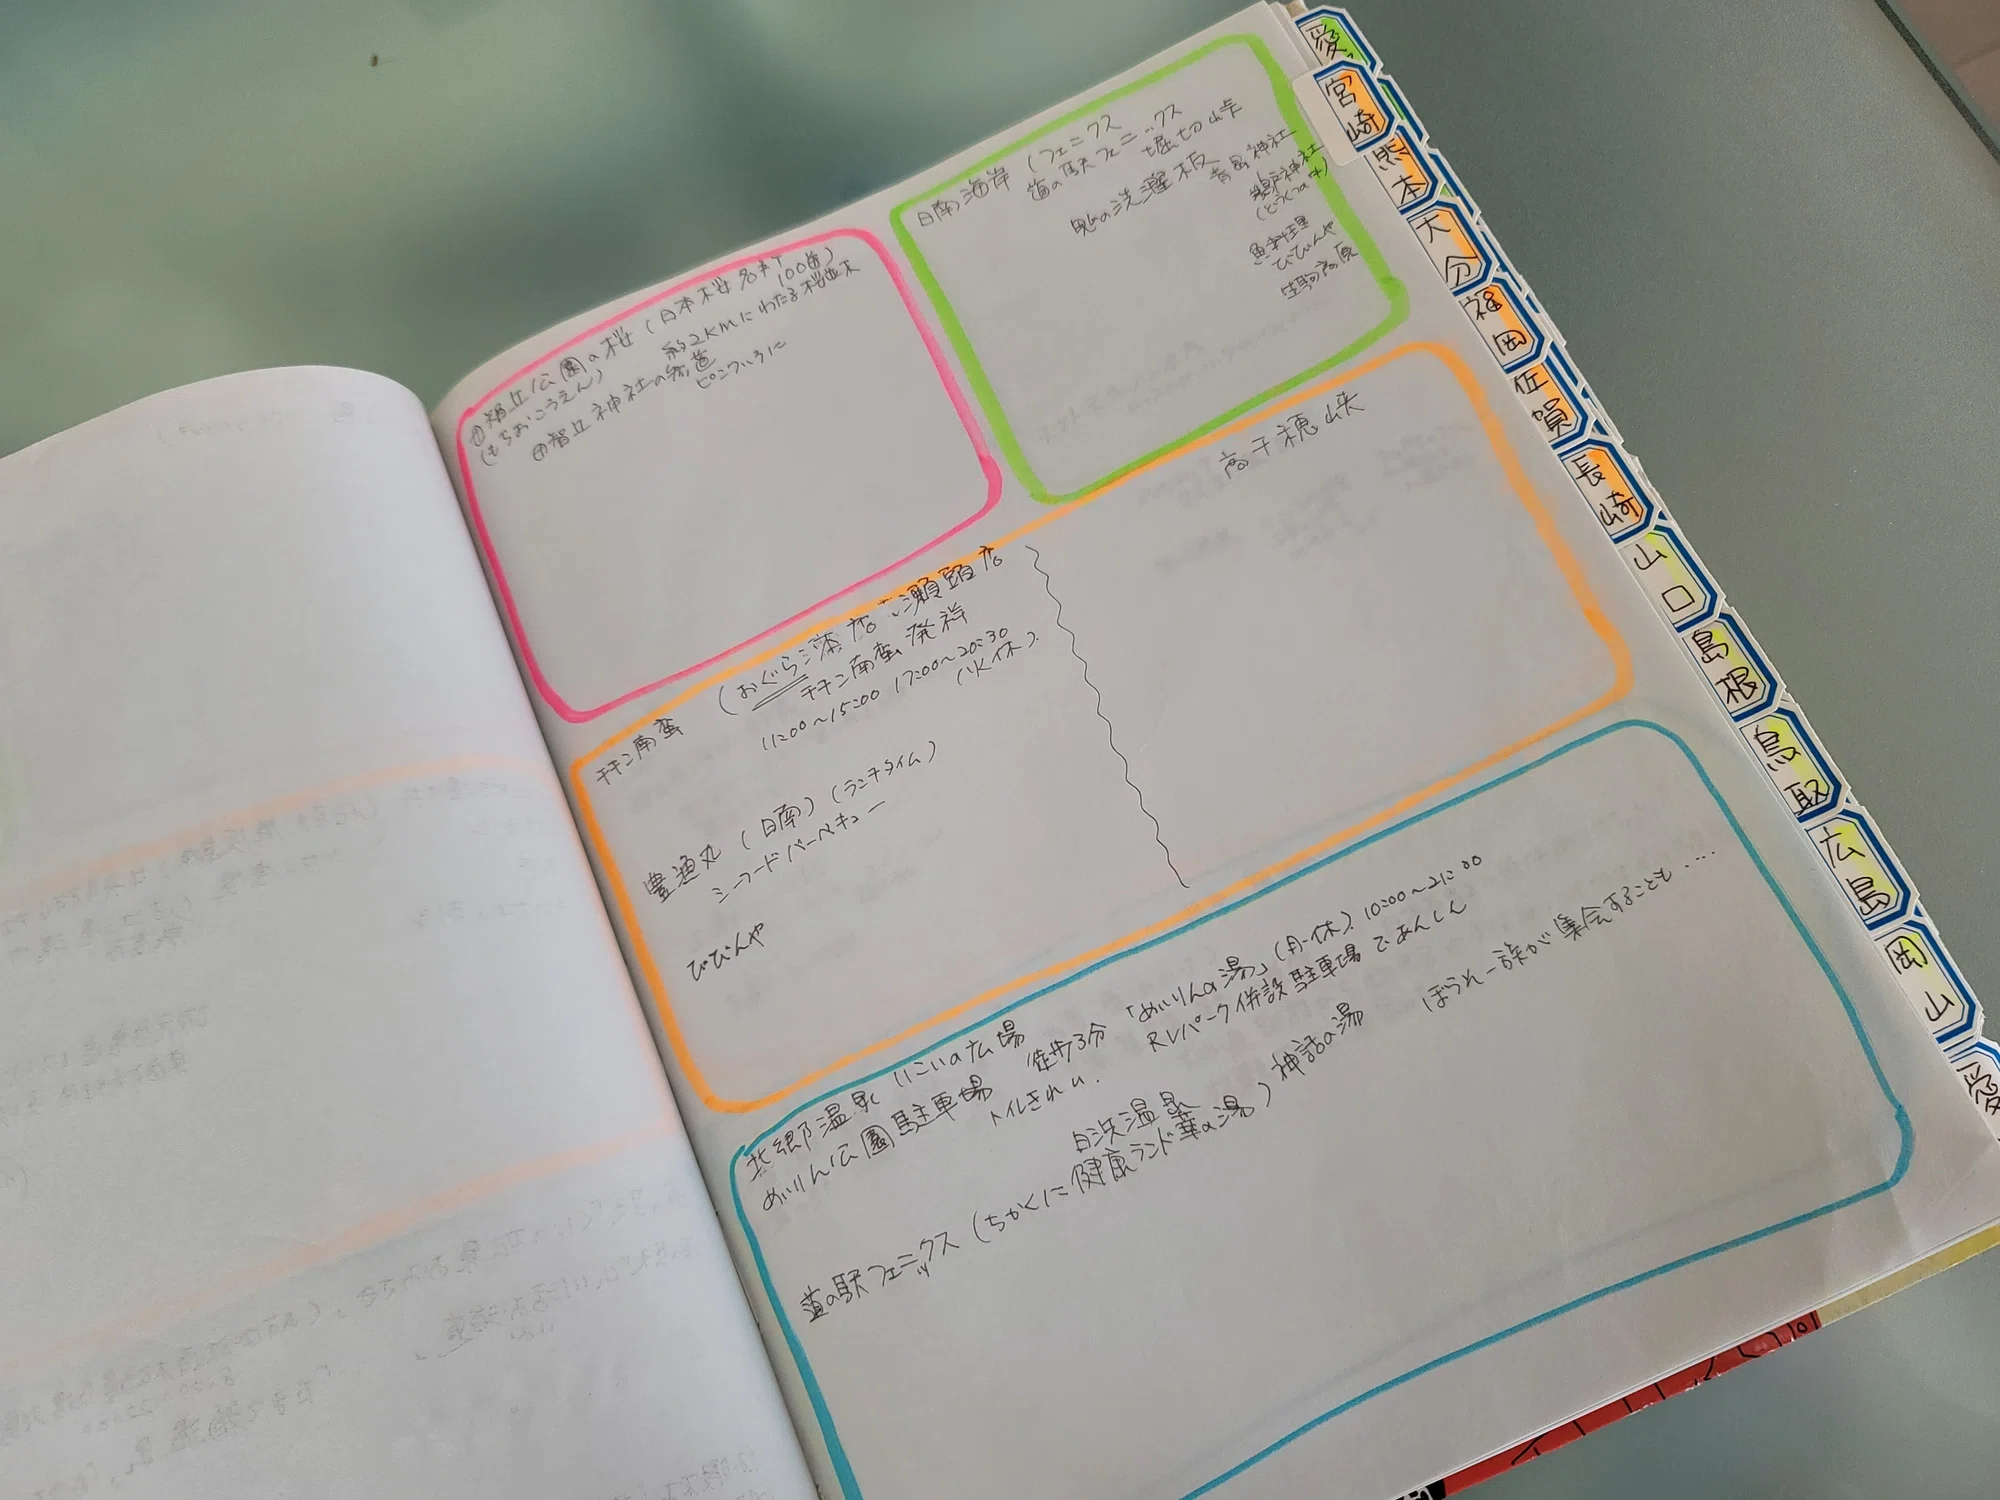 日南海岸(フェニックス
道の駅フェニックス
堀切峠
鬼の洗濯板
青島神社
鵜戸神社
(どうくつの中)
魚料理
びびんや
生駒高原
(日本桜名所100選)
(もちおこうえん)
約2kmにわたる桜並木
ピンクいろに
高千穂峡
チキン南蛮 (おぐら 瀬頭店
チキン南蛮発祥
11:00~15:00 17:00~20:30
(火休).
豊漁丸(日南)(ランチタイム)
シーフードバーベキュー
びびんや
北郷温泉 いこいの広場
めいりん公園駐車場 徒歩3分 「めいりんの湯」(月-休). 10:00~21:00
トイレきれい. RVパーク併設駐車場であんしん
白浜温泉
道の駅フェニックス(ちかくに健康ランド華の湯) 神話の湯 ぼうれー族が集会することも....
愛
宮崎
熊本
大分
福岡
佐賀
長崎
山口
島根
鳥取
広島
岡山
愛